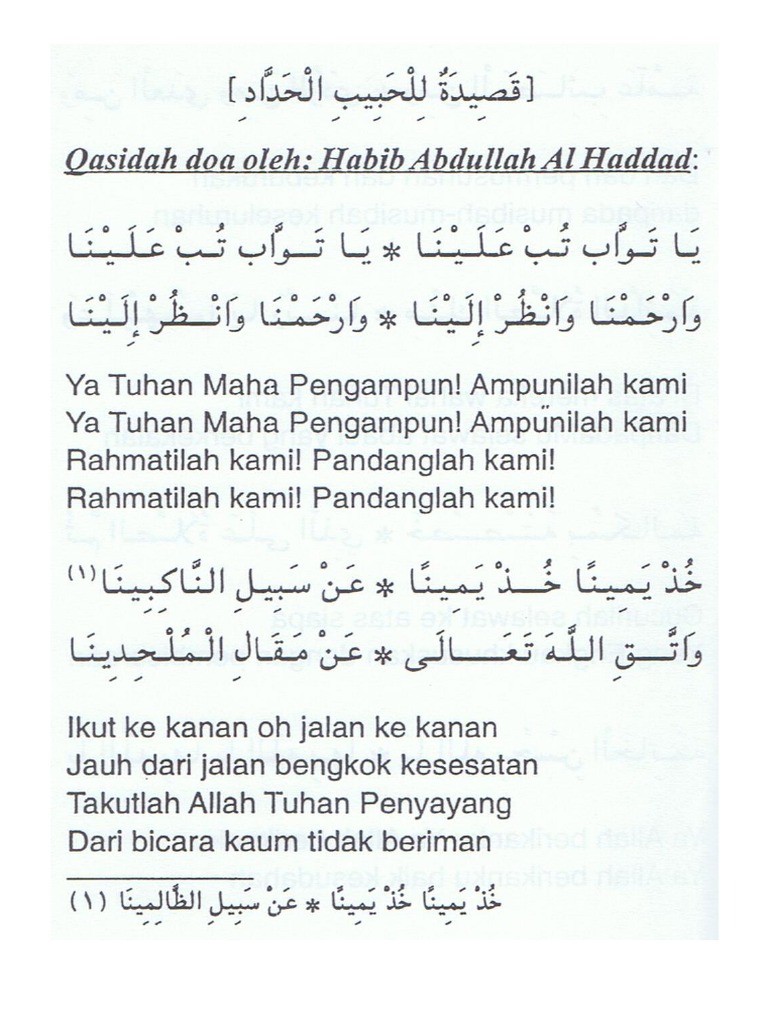 [قَصِيدَةٌ لِلْحَبِيبِ الْحَدَّادِ]
Qasidah doa oleh: Habib Abdullah Al Haddad:
يَا تَوَّاب تُبْ عَلَيْنَا * يَا تَوَّاب تُبْ عَلَيْنَا
وَارْحَمْنَا وَانْظُرْ إِلَيْنَا * وَارْحَمْنَا وَانْظُرْ إِلَيْنَا
Ya Tuhan Maha Pengampun! Ampunilah kami
Ya Tuhan Maha Pengampun! Ampunilah kami
Rahmatilah kami! Pandanglah kami!
Rahmatilah kami! Pandanglah kami!
خُذْ يَمِينًا خُذْ يَمِينًا * عَنْ سَبِيلِ النَّاكِبِينَا (١)
وَاتَّقِ اللَّهَ تَعَالَى * عَنْ مَقَالِ الْمُلْحِدِينَا
Ikut ke kanan oh jalan ke kanan
Jauh dari jalan bengkok kesesatan
Takutlah Allah Tuhan Penyayang
Dari bicara kaum tidak beriman
(١) خُذْ يَمِينًا خُذْ يَمِينًا * عَنْ سَبِيلِ الظَّالِمِينَا